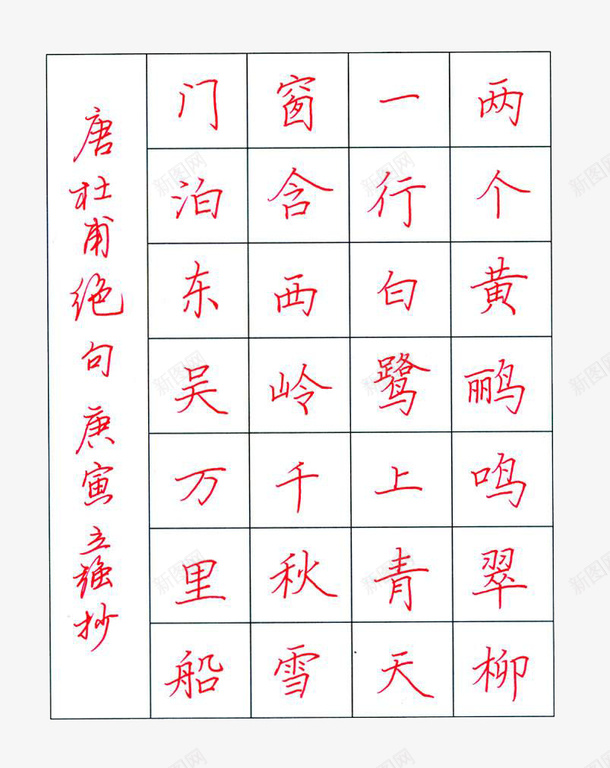 两个黄鹂鸣翠柳
一行白鹭上青天
窗含西岭千秋雪
门泊东吴万里船
唐杜甫绝句庚寅立强抄